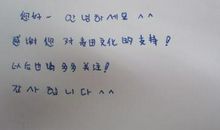 您好~ 안녕하세요 ^^
感谢您对韩国文化的支持!
以后也请多多关注!
감사합니다 ^^